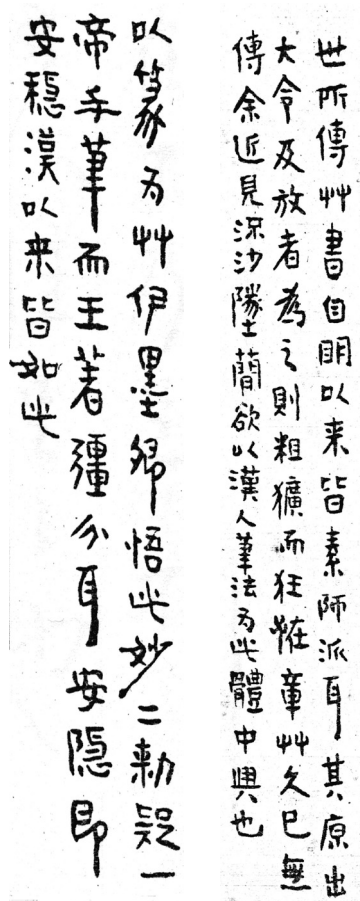 世所傳艸書自明以来皆素師派耳其原出
大令及放者為之則粗獷而狂怪章艸久已無
傳余近見流沙隊簡欲以漢人筆法为此體中興也
以篆为艸伊墨卿悟此妙二勅疑一
帝手筆而王著彊分耳安隱即
安穩漢以来皆如此